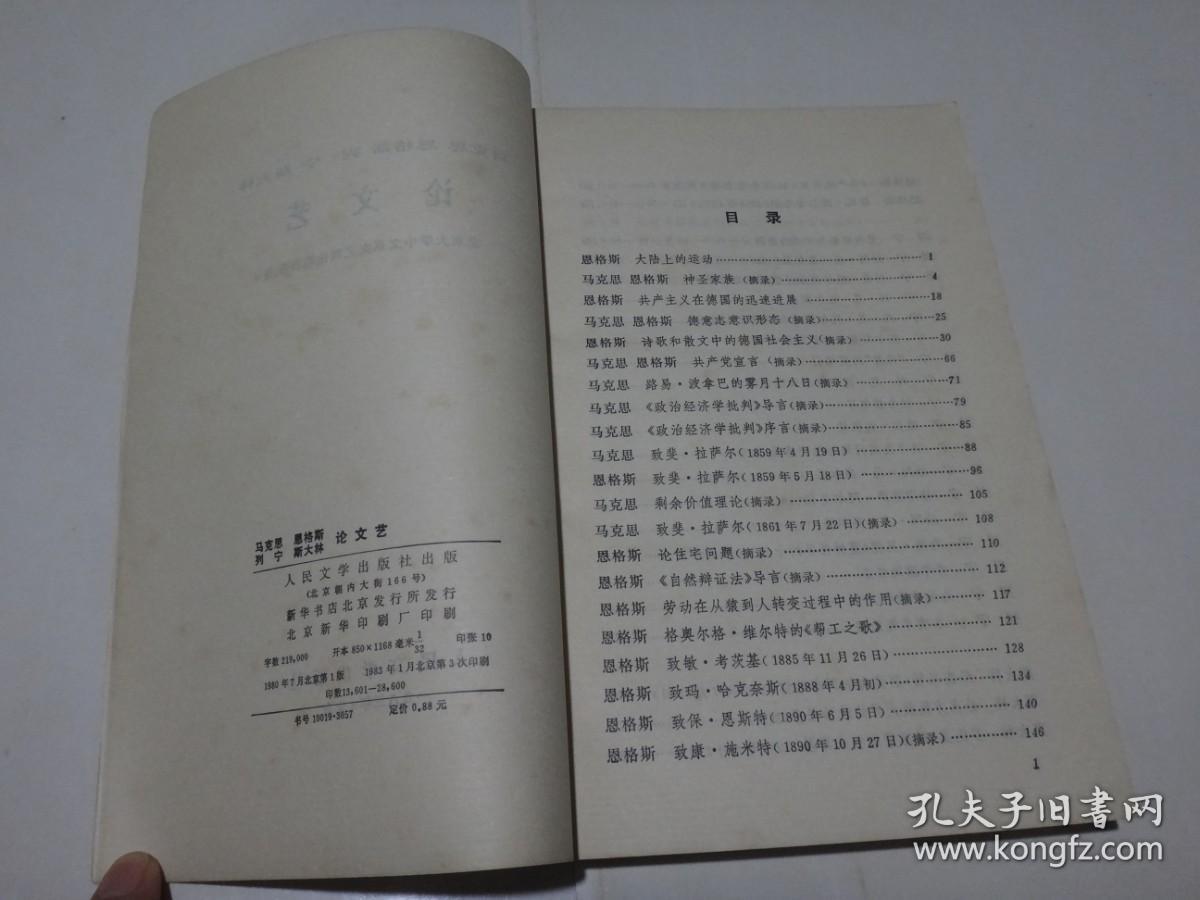 马克思 恩格斯
列 宁 斯大林 论文艺
人民文学出版社出版
(北京朝内大街166号)
新华书店北京发行所发行
北京新华印刷厂印刷
字数219,000 开本850×1168毫米1/32 印张10
1980年7月北京第1版 1983年1月北京第3次印刷
印数13,601—28,600
书号10019·3057 定价0.88元
目 录
恩格斯 大陆上的运动……1
马克思 恩格斯 神圣家族(摘录)……4
恩格斯 共产主义在德国的迅速进展……18
马克思 恩格斯 德意志意识形态(摘录)……25
恩格斯 诗歌和散文中的德国社会主义(摘录)……30
马克思 恩格斯 共产党宣言(摘录)……66
马克思 路易·波拿巴的雾月十八日(摘录)……71
马克思 《政治经济学批判》导言(摘录)……79
马克思 《政治经济学批判》序言(摘录)……85
马克思 致斐·拉萨尔(1859年4月19日)……88
恩格斯 致斐·拉萨尔(1859年5月18日)……96
马克思 剩余价值理论(摘录)……105
马克思 致斐·拉萨尔(1861年7月22日)(摘录)……108
恩格斯 论住宅问题(摘录)……110
恩格斯 《自然辩证法》导言(摘录)……112
恩格斯 劳动在从猿到人转变过程中的作用(摘录)……117
恩格斯 格奥尔格·维尔特的《帮工之歌》……121
恩格斯 致敏·考茨基(1885年11月26日)……128
恩格斯 致玛·哈克奈斯(1888年4月初)……134
恩格斯 致保·恩斯特(1890年6月5日)……140
恩格斯 致康·施米特(1890年10月27日)(摘录)……146
1
孔夫子旧书网
www.kongfz.com